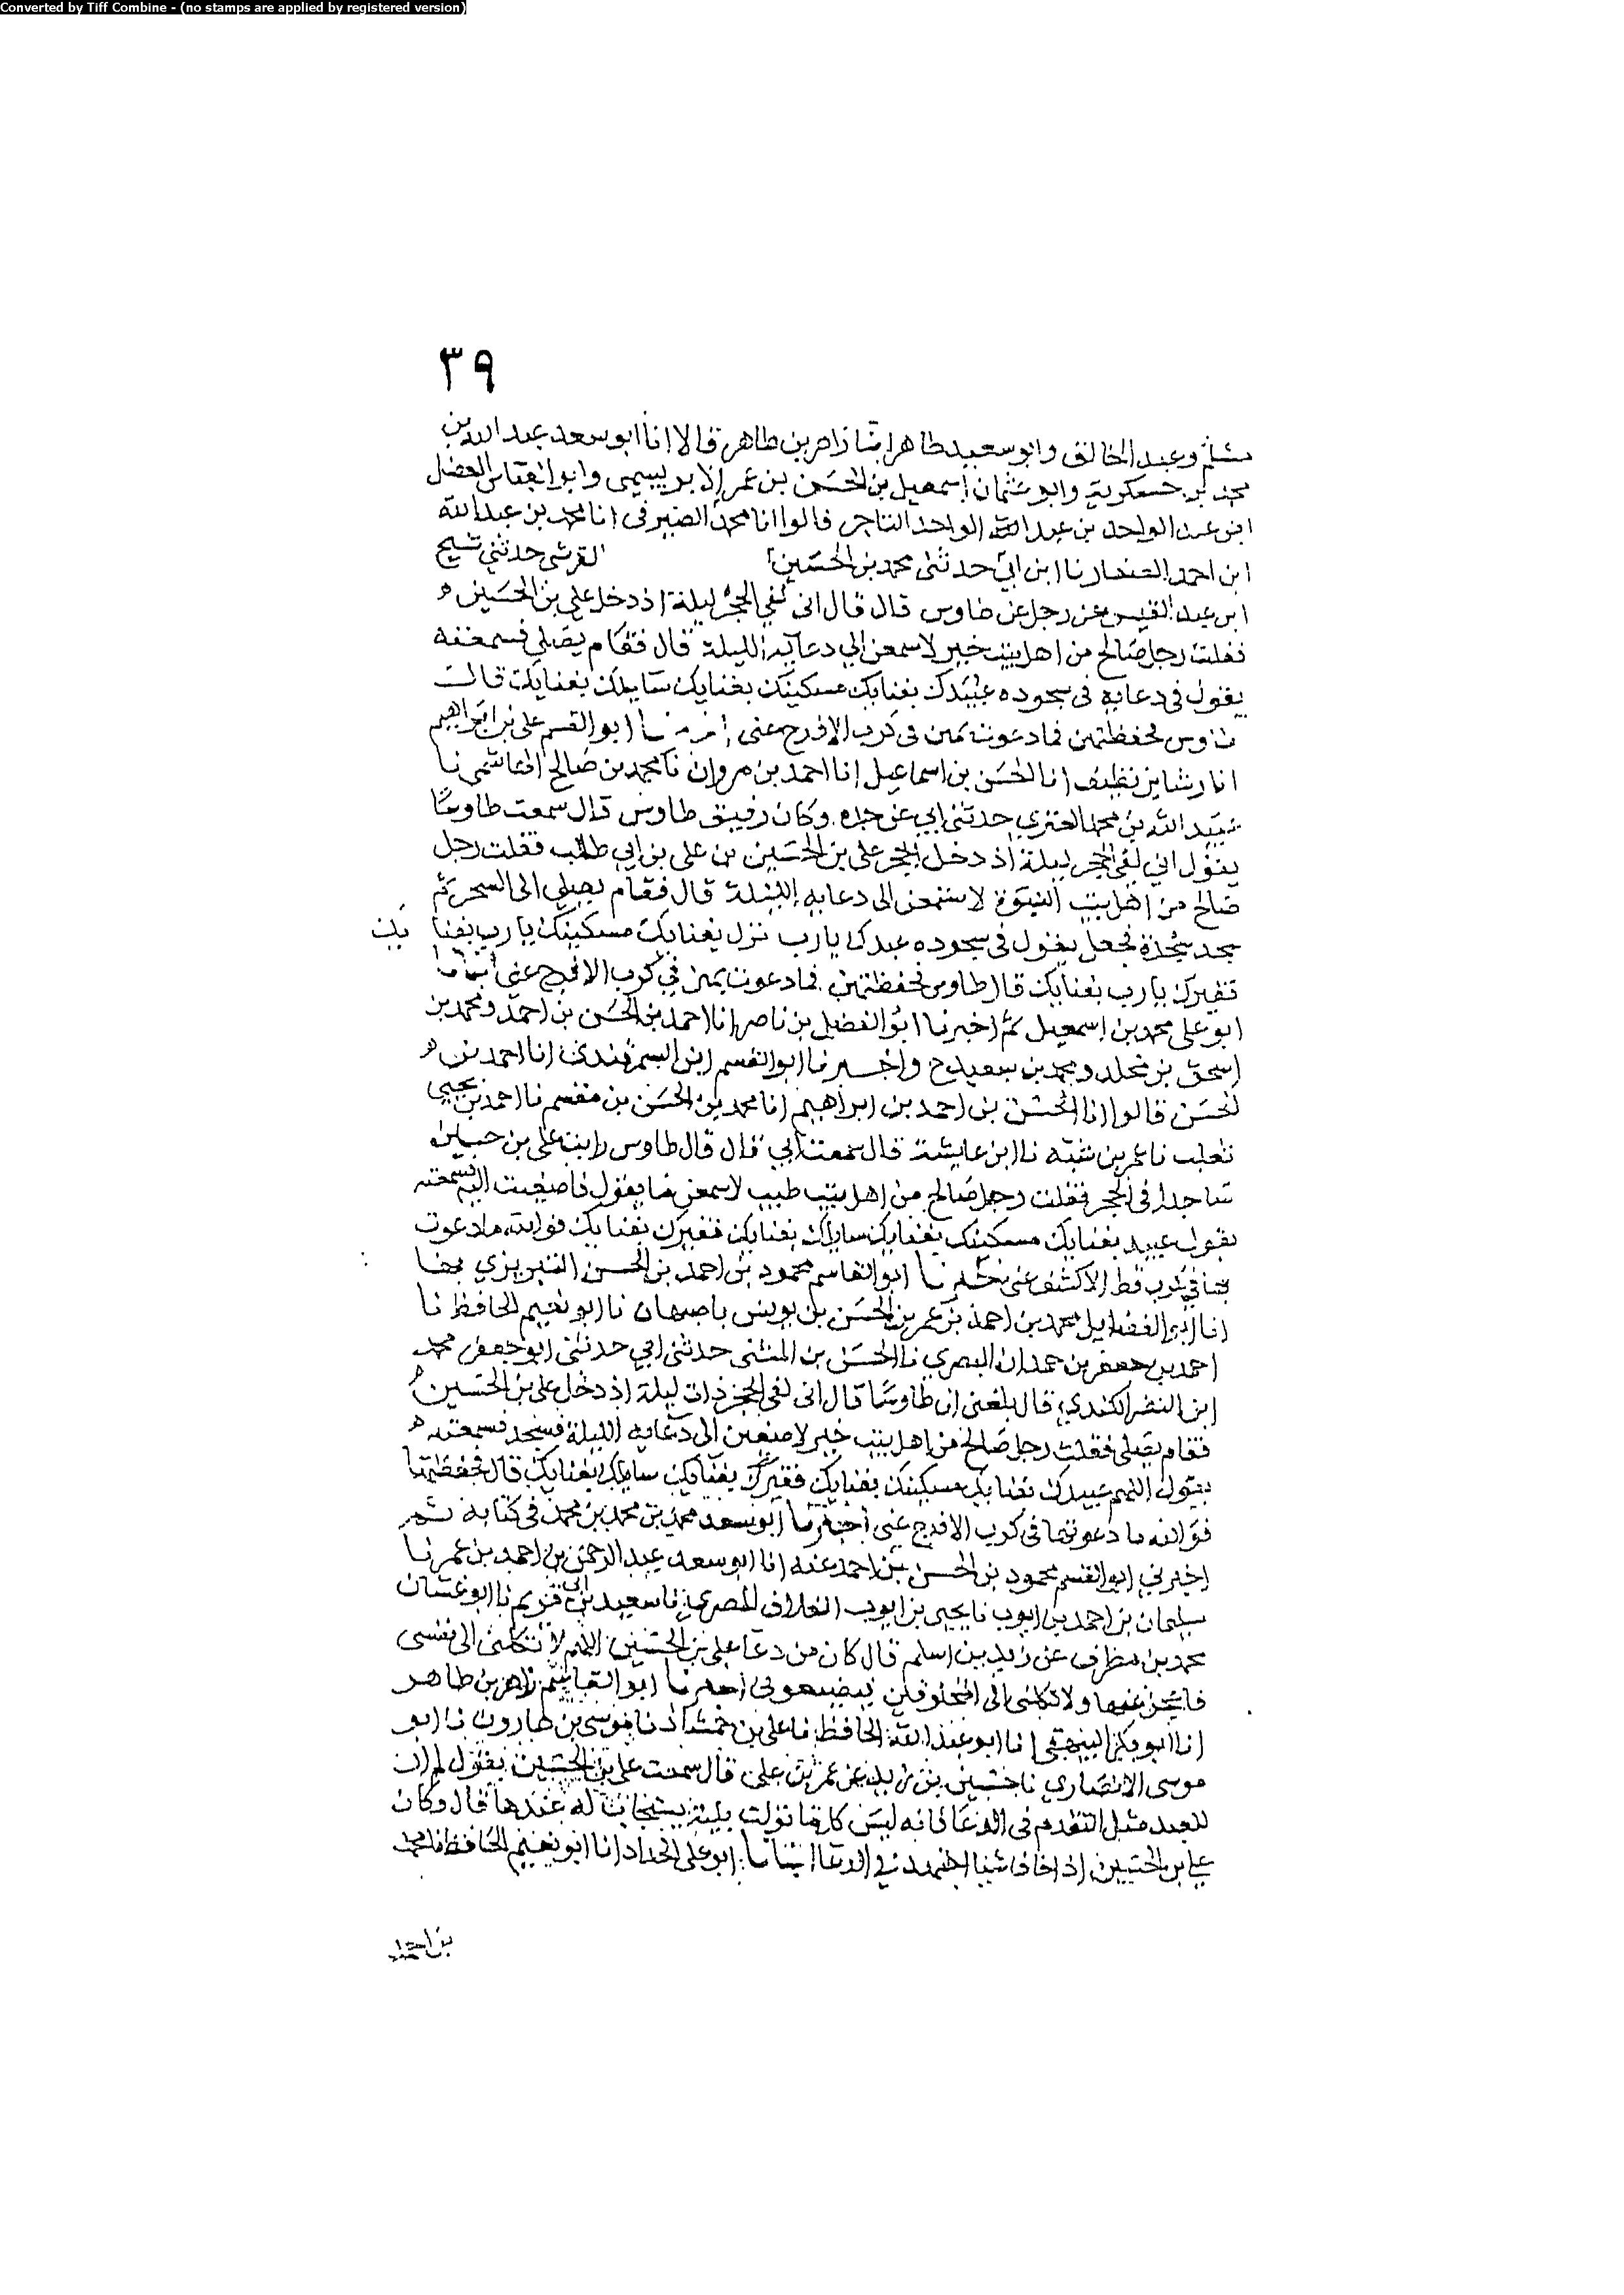 Converted by Tiff Combine - (no stamps are applied by registered version)
٣٩
وعبد الخالق وابو سعيد طاهر ابنا زاهر بن طاهر قالا انا ابو سعد عبد الله بن
محمد بن حسكوية وابو عثمان اسمعيل بن الحسن بن عمر وابو العباس الفضل
ابن عبد الواحد بن عبد الواحد التاجر قالوا انا محمد الصيرفى انا محمد بن عبد الله
ابن احمد الصفار نا ابن ابي حدثنى محمد بن الحسين القرشى حدثني شيخ
ابن عبد القيس عن رجل عن طاوس قال قال انى لفي الحجر ليلة اذ دخل علي بن الحسين
فقلت رجل صالح من اهل بيت خير لاسمعن الي دعايه الليلة قال فقام يصلي فسمعته
يقول فى دعايه فى سجوده عبيدك بفنايك مسكينك بفنايك سايلك بفنايك قال
طاوس فحفظتهن فما دعوت بهن فى كرب الا فرج عنى ابو القسم علي بن ابراهيم
انا رشا بن نظيف انا الحسن بن اسماعيل انا احمد بن مروان نا محمد بن صالح الهاشمي نا
عبيد الله بن محمد العنزي حدثني ابي عن جده وكان رفيق طاوس قال سمعت طاوسا
يقول اني لفي الحجر ليلة اذ دخل الحجر على بن الحسين بن على بن ابي طالب فقلت رجل
صالح من اهل بيت النبوة لاستمعن الى دعايه الليلة قال فقام يصلي الى السحر ثم
سجد سجدة فجعل يقول فى سجوده عبدك يا رب نزل بفنايك مسكينك يا رب بفنايك
فقيرك يا رب بفنايك قال طاوس فحفظتهن فما دعوت بهن في كرب الا فرج عني
ابو على محمد بن اسمعيل ثم اخبرنا ابو الفضل بن ناصر انا احمد بن الحسن بن احمد ومحمد بن
اسحق بن مخلد ومحمد بن سعيد ح واخبرنا ابو القسم ابن السمرقندي انا احمد بن
الحسن قالوا انا الحسن بن احمد بن ابراهيم انا محمد بن الحسن بن مقسم نا احمد بن يحيى
ثعلب نا عمر بن شبه نا ابن عايشة قال سمعت ابي قال قال طاوس رايت علي بن حسين
ساجدا فى الحجر فقلت رجل صالح من اهل بيت طيب لاسمعن ما يقول فاصغيت اليه فسمعته
يقول عبيدك بفنايك مسكينك بفنايك سايلك بفنايك فقيرك بفنايك فوالله ما دعوت
بها في كرب قط الا كشف عنى ابو القاسم محمود بن احمد بن الحسن التبريزي بها
انا ابو الفضايل محمد بن احمد بن عمر بن الحسن بن يونس باصبهان نا ابو نعيم الحافظ نا
احمد بن جعفر بن حمدان البصري نا الحسن بن المثنى حدثنى ابي حدثنى ابو جعفر محمد
ابن النضر الكندي قال بلغنى ان طاوسا قال انى لفى الحجر ذات ليلة اذ دخل على بن الحسين
فقام يصلى فقلت رجل صالح من اهل بيت خير لاصغين الى دعايه الليلة فسجد فسمعته
يقول اللهم عبيدك بفنايك مسكينك بفنايك فقيرك بفنايك سايلك بفنايك قال فحفظتها
فوالله ما دعوتها فى كرب الا فرج عنى اخبرنا ابو سعد محمد بن محمد بن محمد فى كتابه ثم
اخبرني ابو القسم محمود بن الحسن بن احمد عنه انا ابو سعد عبد الرحمن بن احمد بن عمر نا
سليمان بن احمد بن ايوب نا يحيى بن ايوب العلاف المصري نا سعيد بن ابى مريم نا ابو غسان
محمد بن مطرف عن زيد بن اسلم قال كان من دعا على بن الحسين اللهم لا تكلنى الى نفسى
فاعجز عنها ولا تكلنى الى المخلوقين فيضيعونى اخبرنا ابو القاسم زاهر بن طاهر
انا ابو بكر البيهقى انا ابو عبد الله الحافظ نا على بن حمشاد نا موسى بن هارون نا ابو
موسى الانصاري نا حسين بن زيد عن عمر بن على قال سمعت على بن الحسين يقول لم ار
للعبد مثل التقدم فى الدعا فانه ليس كلما نزلت بلية يستجاب له عندها قال وكان
علي بن الحسين اذا خاف شيا اجتهد في الدعا انبانا ابو على الحداد انا ابو نعيم الحافظ نا محمد
بن احمد